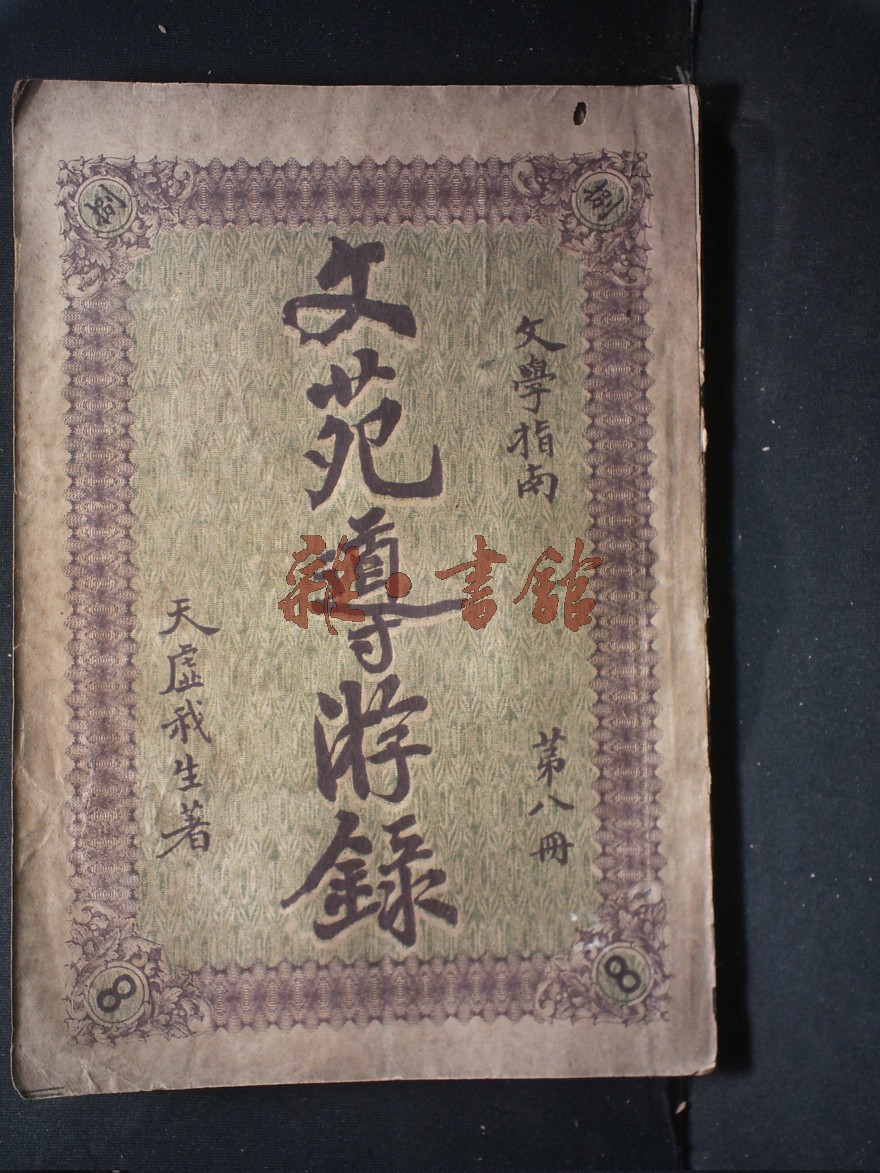 文學指南
第八冊
文苑導游錄
天虛我生著
捌
捌
8
8
雜·書館